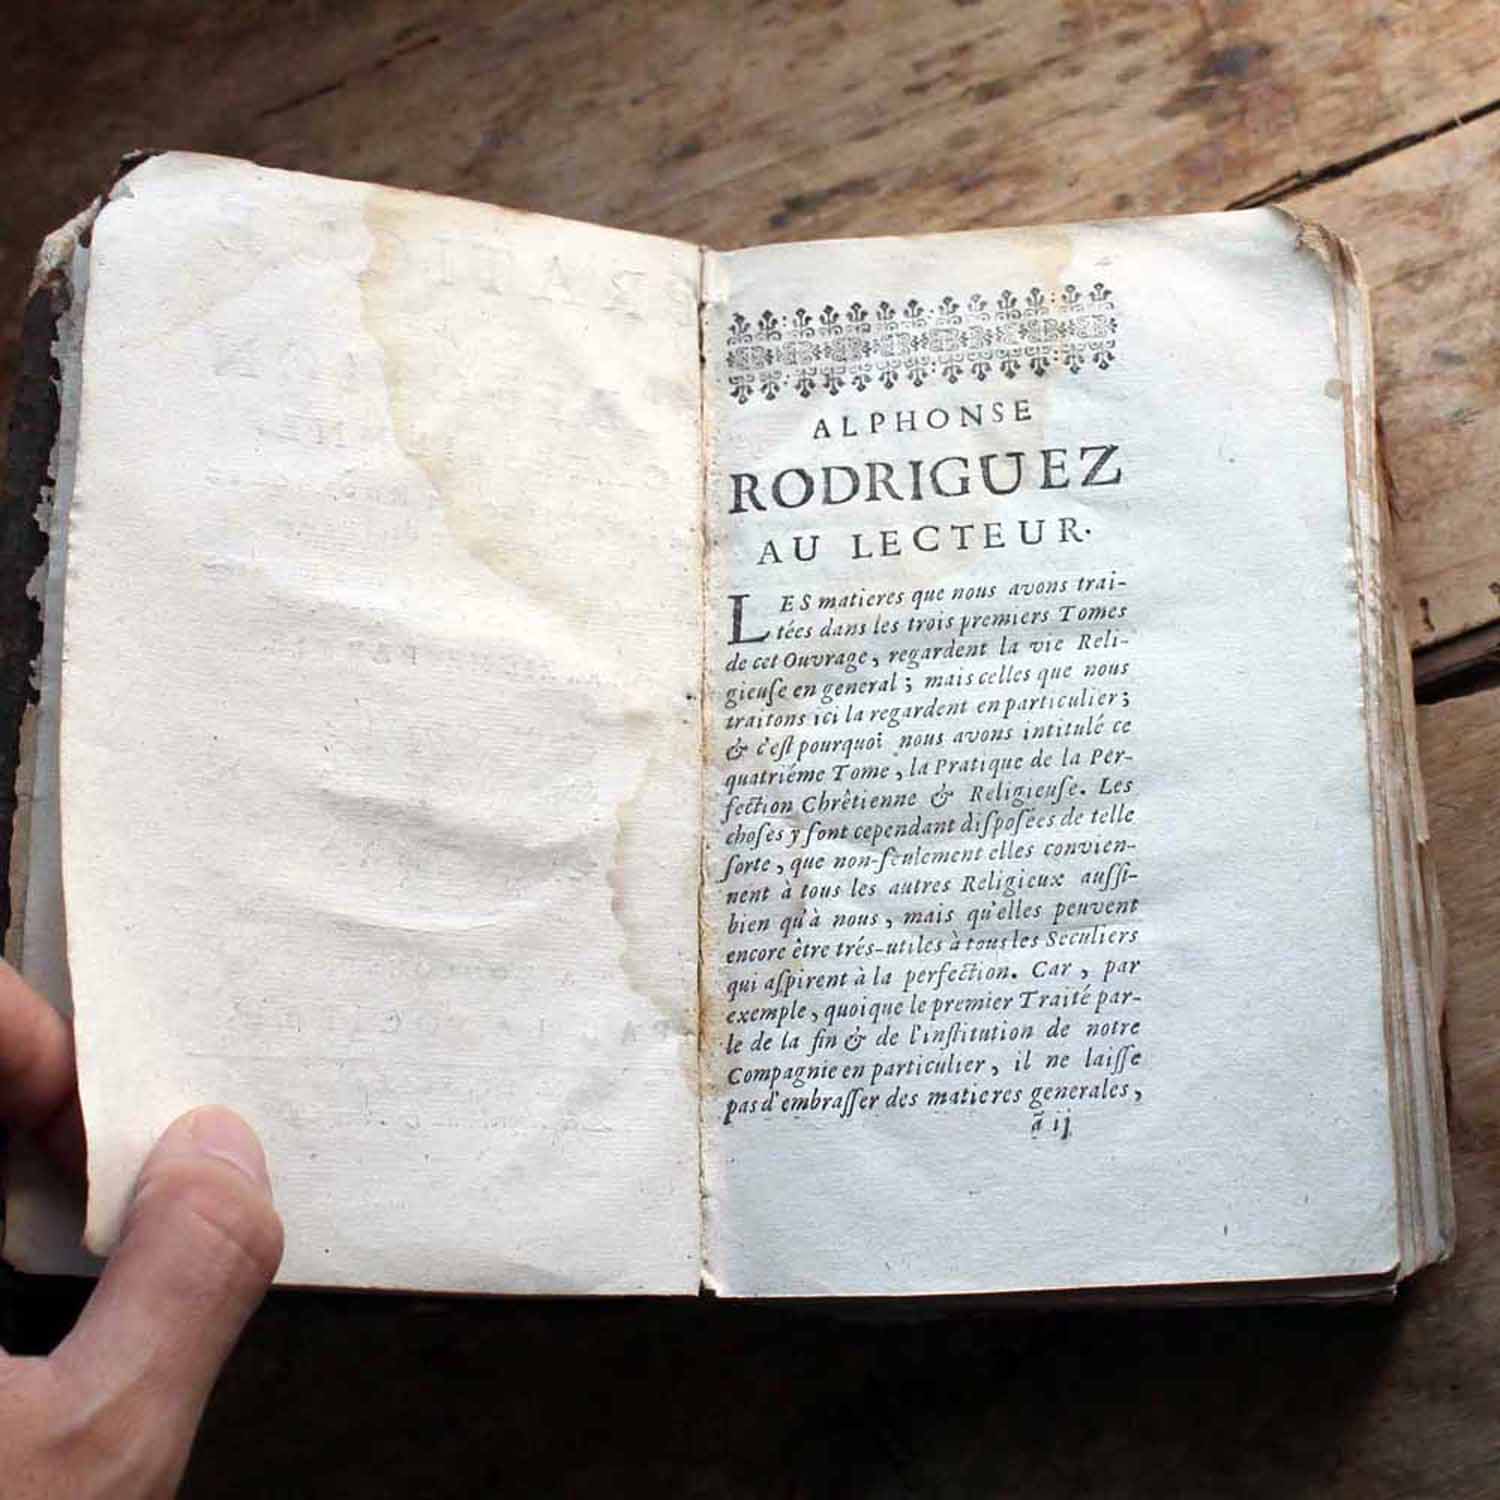 ALPHONSE
RODRIGUEZ
AU LECTEUR.
LES matieres que nous avons trai-
tées dans les trois premiers Tomes
de cet Ouvrage, regardent la vie Reli-
gieuſe en general; mais celles que nous
traitons ici la regardent en particulier;
& c'eſt pourquoi nous avons intitulé ce
quatriéme Tome, la Pratique de la Per-
fection Chrêtienne & Religieuſe. Les
choſes y ſont cependant diſpoſées de telle
ſorte, que non-ſeulement elles convien-
nent à tous les autres Religieux auſſi-
bien qu'à nous, mais qu'elles peuvent
encore être trés-utiles à tous les Seculiers
qui aſpirent à la perfection. Car, par
exemple, quoique le premier Traité par-
le de la fin & de l'inſtitution de notre
Compagnie en particulier, il ne laiſſe
pas d'embraſſer des matieres generales,
ã ij